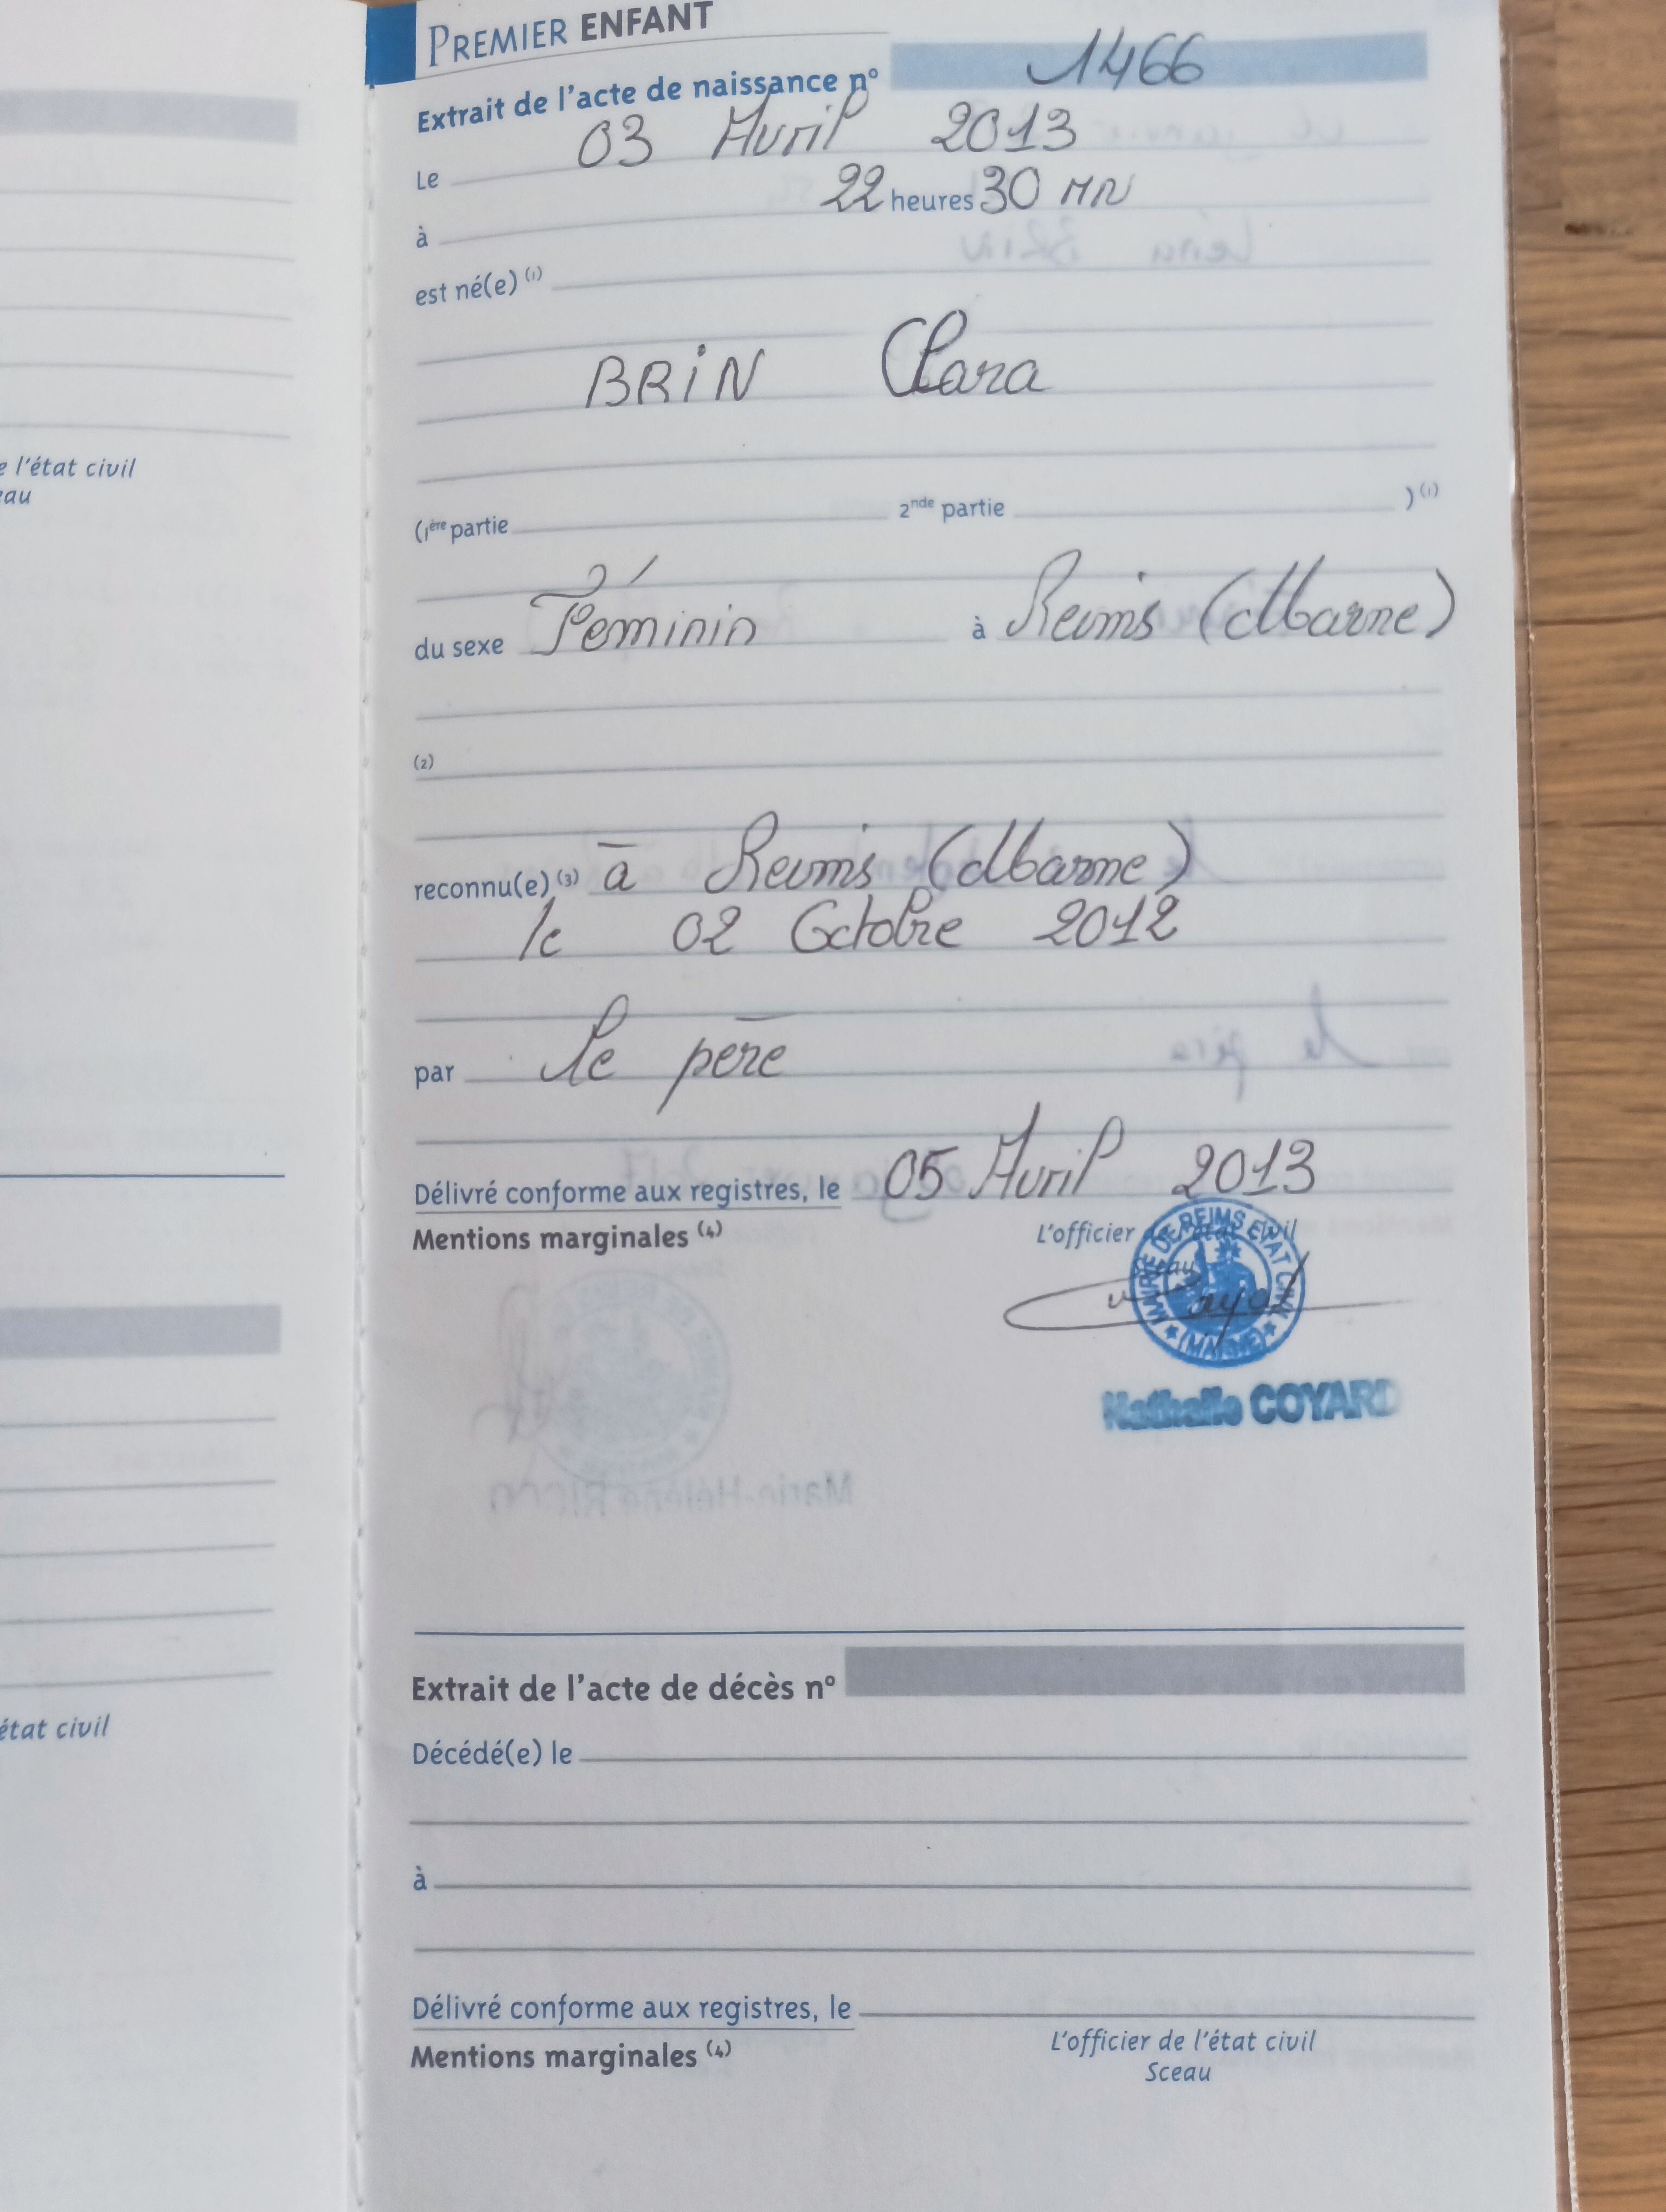 PREMIER ENFANT
Extrait de l'acte de naissance nº 1466
Le 03 Avril 2013
à 22 heures 30 MN
est né(e) (1)
BRIN Clara
(1ère partie 2nde partie )(1)
du sexe Féminin à Reims (Marne)
(2)
reconnu(e) (3) à Reims (Marne)
le 02 Octobre 2012
par le père
Délivré conforme aux registres, le 05 Avril 2013
Mentions marginales (4)
L'officier de l'état civil
Sceau
MAIRIE DE REIMS ETAT CIVIL
(MARNE)
Nathalie COYARD
Extrait de l'acte de décès nº
Décédé(e) le
à
Délivré conforme aux registres, le
Mentions marginales (4)
L'officier de l'état civil
Sceau
e l'état civil
eau
état civil